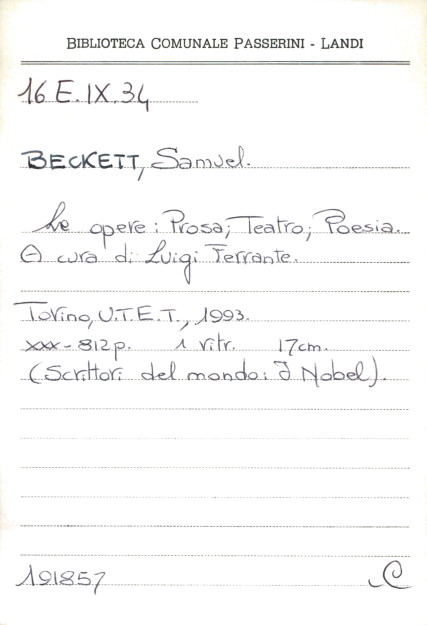 BIBLIOTECA COMUNALE PASSERINI - LANDI
16 E.IX.34
BECKETT, Samuel.
Le opere: Prosa; Teatro; Poesia.
A cura di Luigi Ferrante.
Torino, U.T.E.T., 1993.
xxx-812p. 1 ritr. 17cm.
(Scrittori del mondo: I Nobel).
191857
C